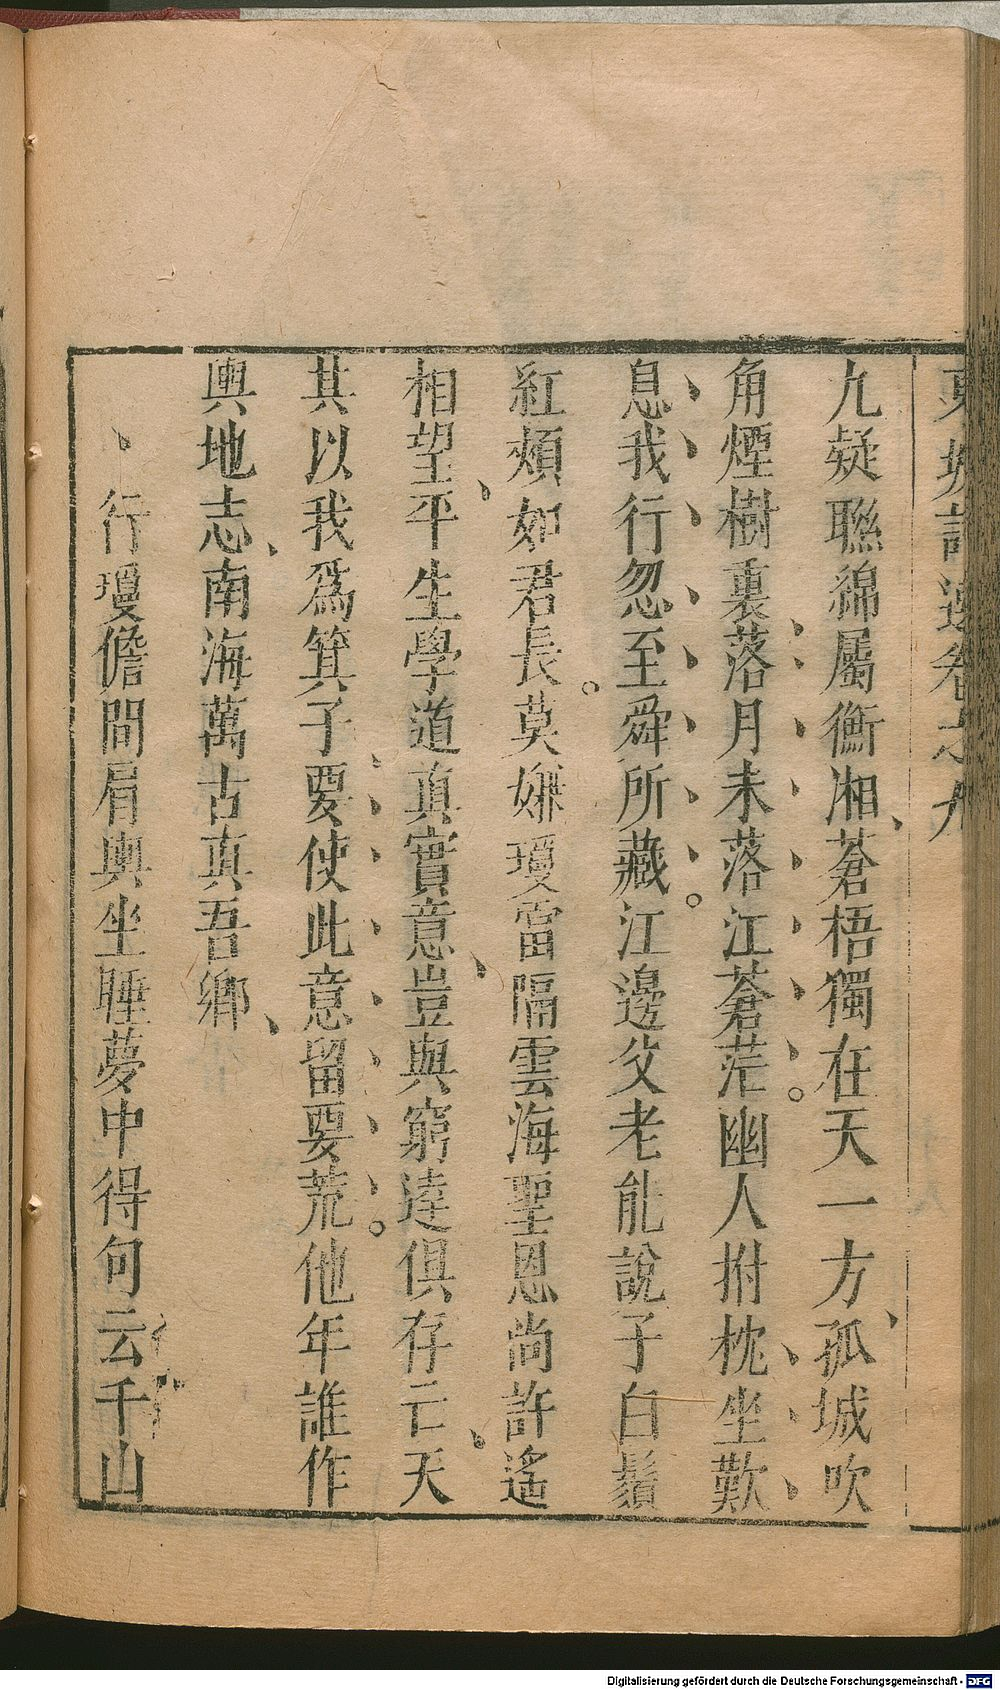 東坡詩選卷之九
九疑聯綿屬衡湘、蒼梧獨在天一方、孤城吹
角煙樹裏落月未落江蒼茫。幽人拊枕坐歎
息我行忽至舜所藏。江邊父老能說子白鬚
紅頰如君長。莫嫌瓊雷隔雲海聖恩尚許遙
相望、平生學道真實意、豈與窮達俱存亡、天
其以我爲箕子要使此意留要荒。他年誰作
輿地志、南海萬古真吾鄉、
、行瓊儋間肩輿坐睡夢中得句云千山
Digitalisierung gefördert durch die Deutsche Forschungsgemeinschaft - DFG